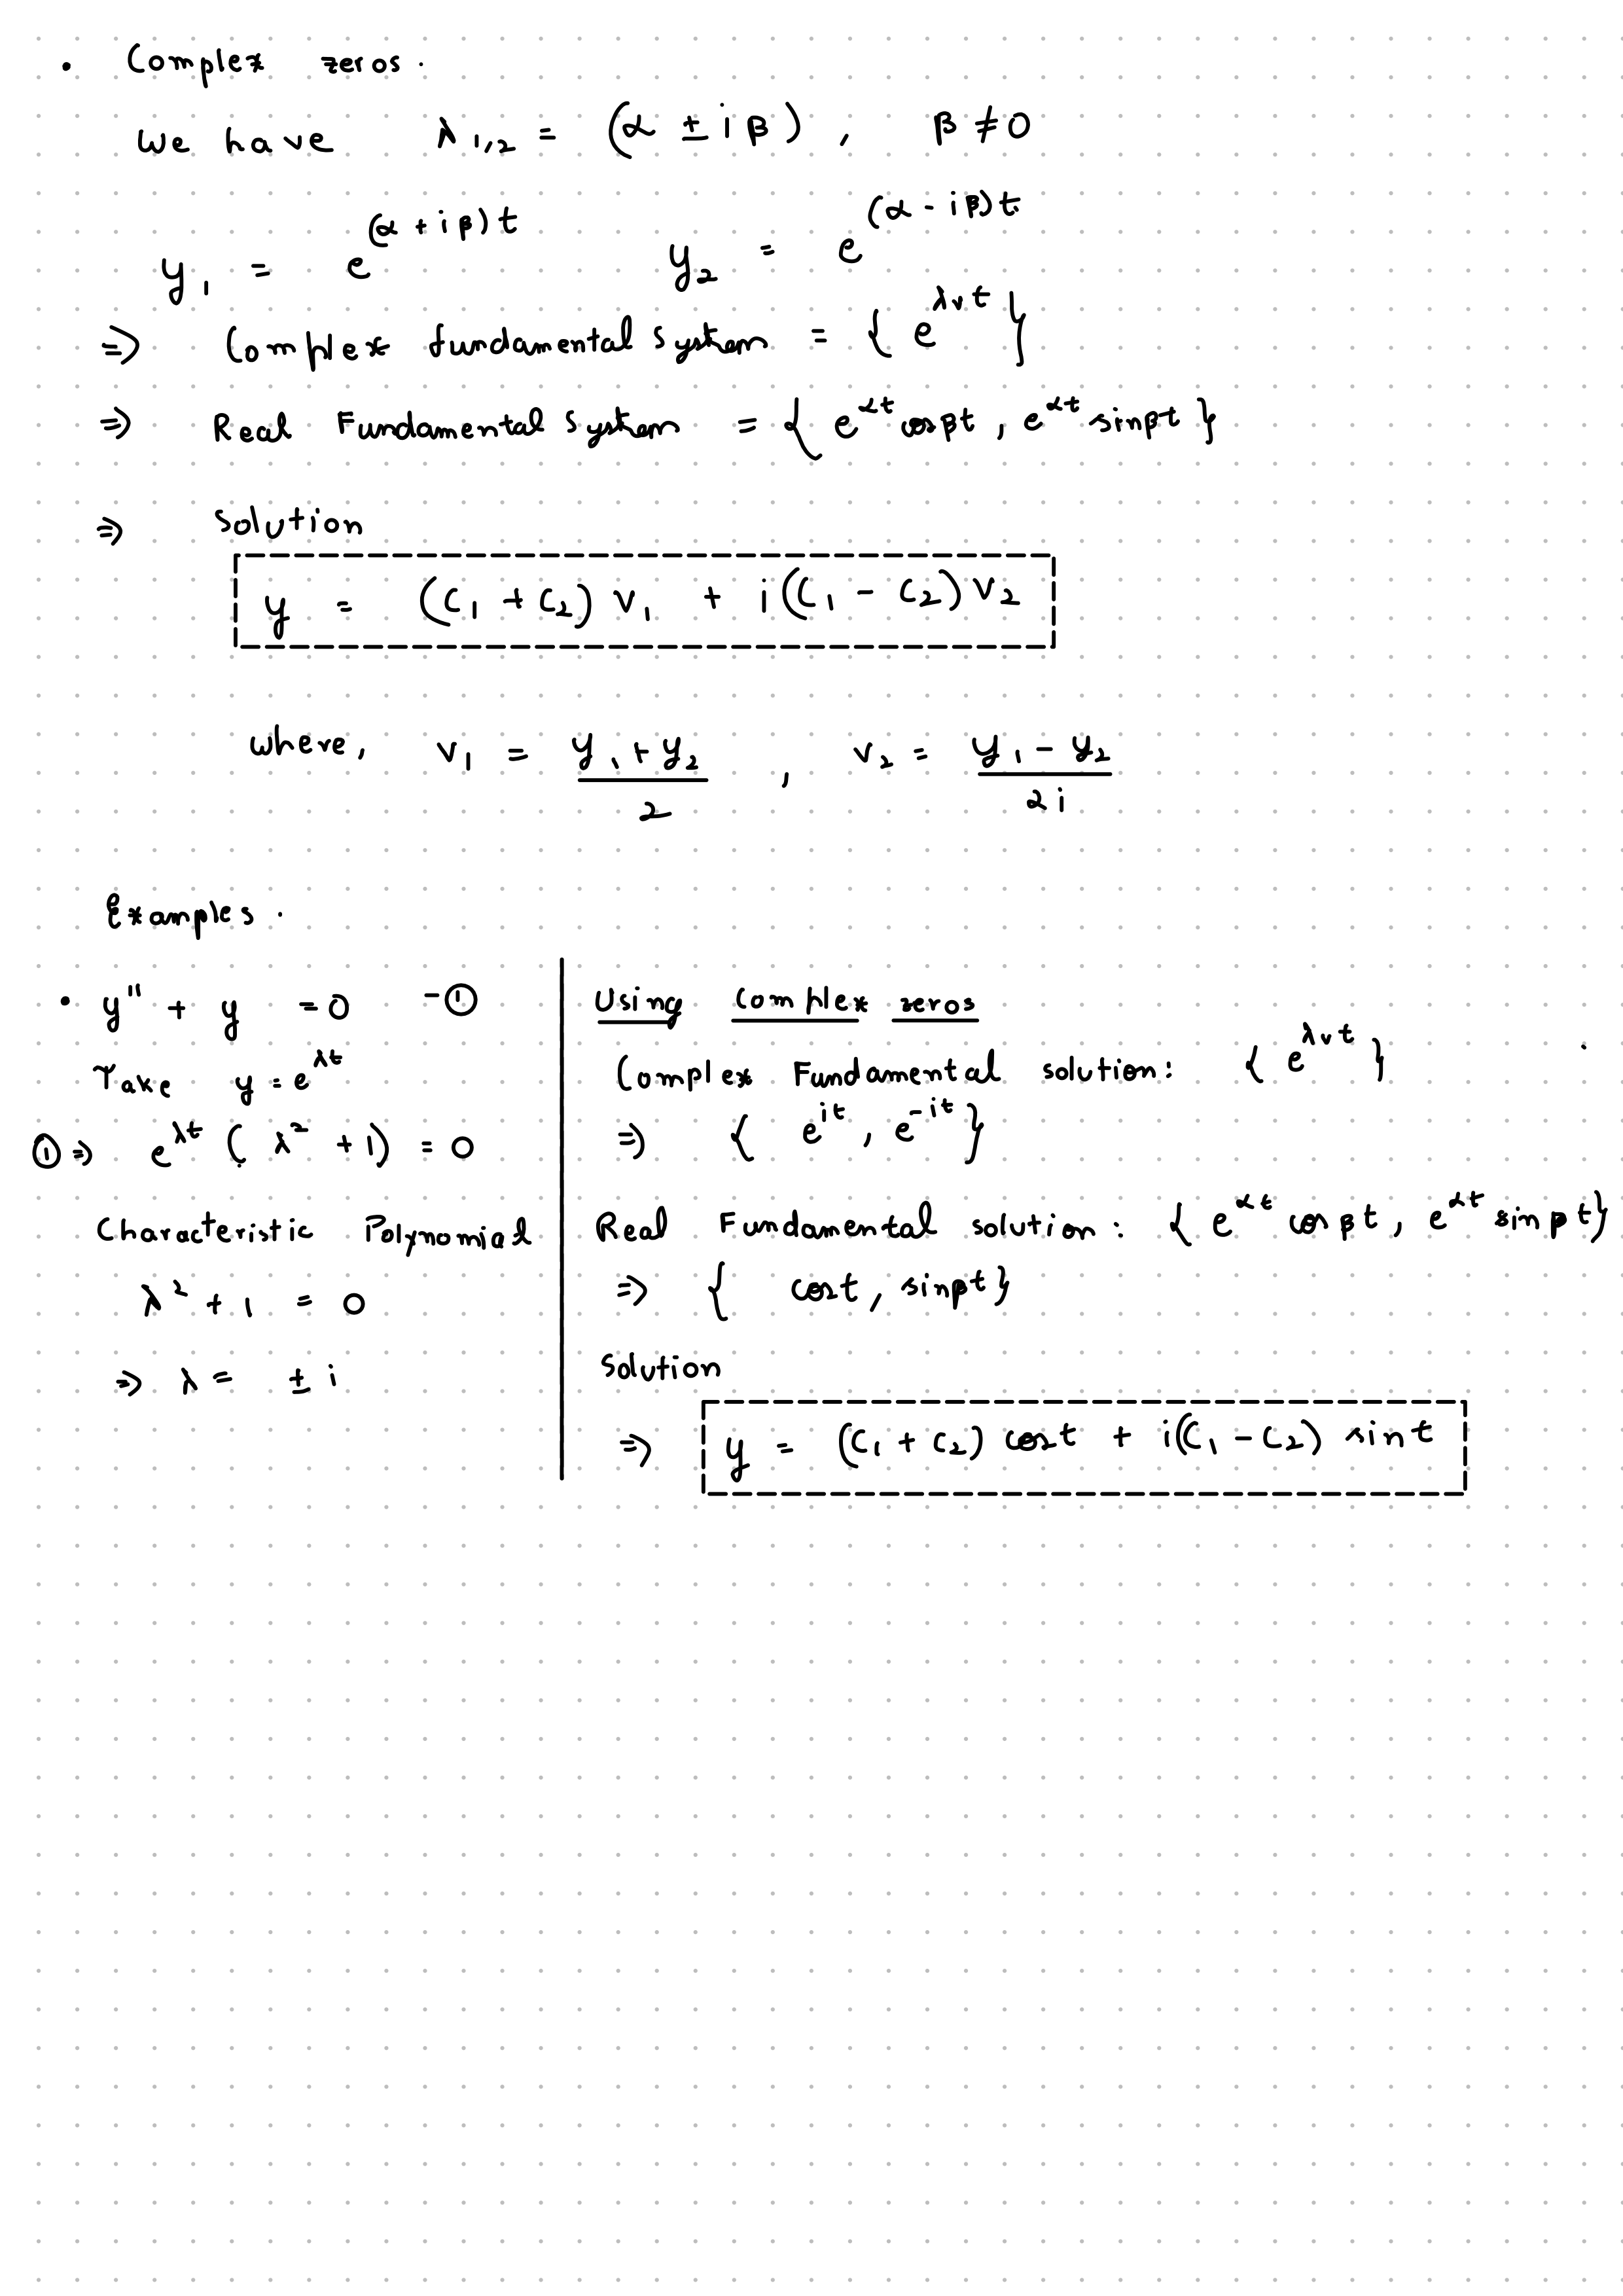 • Complex zeros.
We have λ₁,₂ = (α ± iβ), β ≠ 0
y₁ = e^{(α + iβ)t} y₂ = e^{(α - iβ)t}
⇒ Complex fundamental system = { e^{λᵥt} }
⇒ Real Fundamental System = { e^{αt} cosβt, e^{αt} sinβt }
⇒ Solution
y = (C₁ + C₂) v₁ + i(C₁ - C₂) v₂
where, v₁ = (y₁ + y₂)/2, v₂ = (y₁ - y₂)/2i
Examples.
• y'' + y = 0 - ①
Take y = e^{λt}
① ⇒ e^{λt} (λ² + 1) = 0
Characteristic Polynomial
λ² + 1 = 0
⇒ λ = ± i
Using Complex zeros
Complex Fundamental solution: { e^{λᵥt} }
⇒ { e^{it}, e^{-it} }
Real Fundamental solution: { e^{αt} cosβt, e^{αt} sinβt }
⇒ { cost, sinβt }
Solution
⇒ y = (C₁ + C₂) cost + i(C₁ - C₂) sint